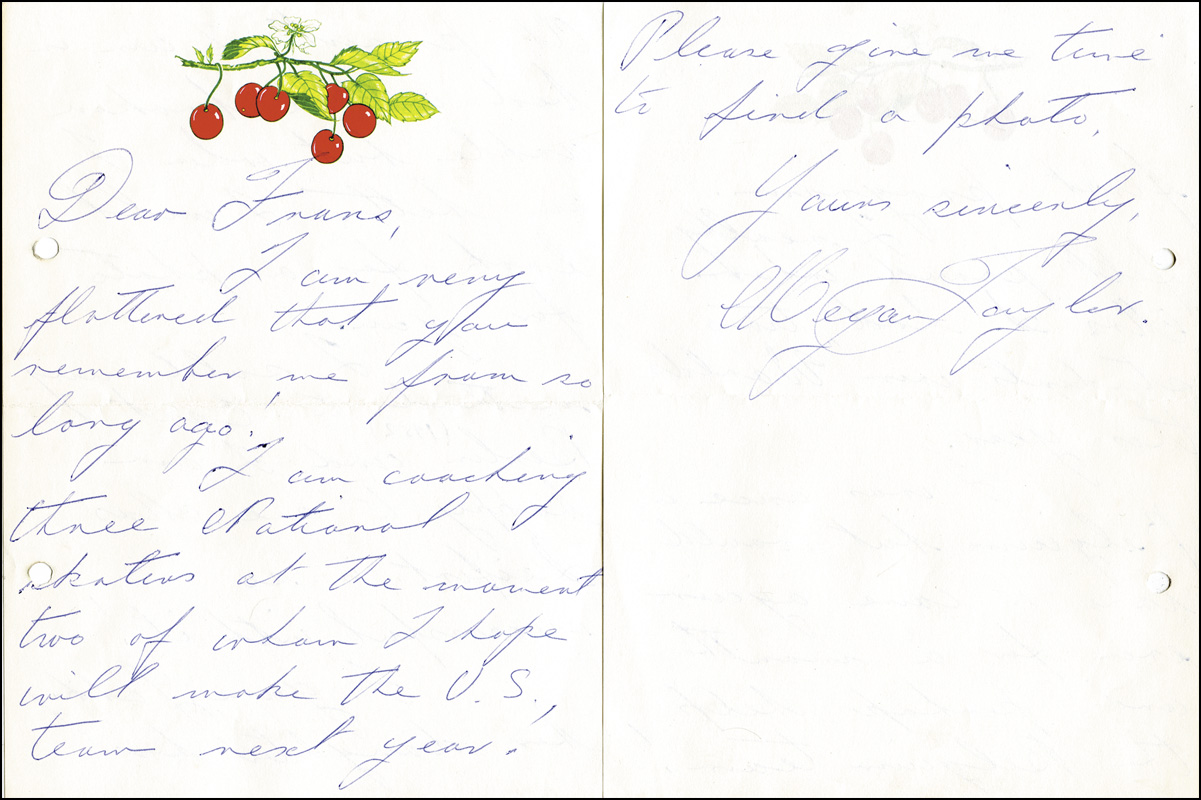 Dear Frans,
I am very
flattered that you
remember me from so
long ago!
I am coaching
three National
skaters at the moment
two of whom I hope
will make the U.S.,
team next year.
Please give me time
to find a photo.
Yours sincerely,
Megan Taylor.